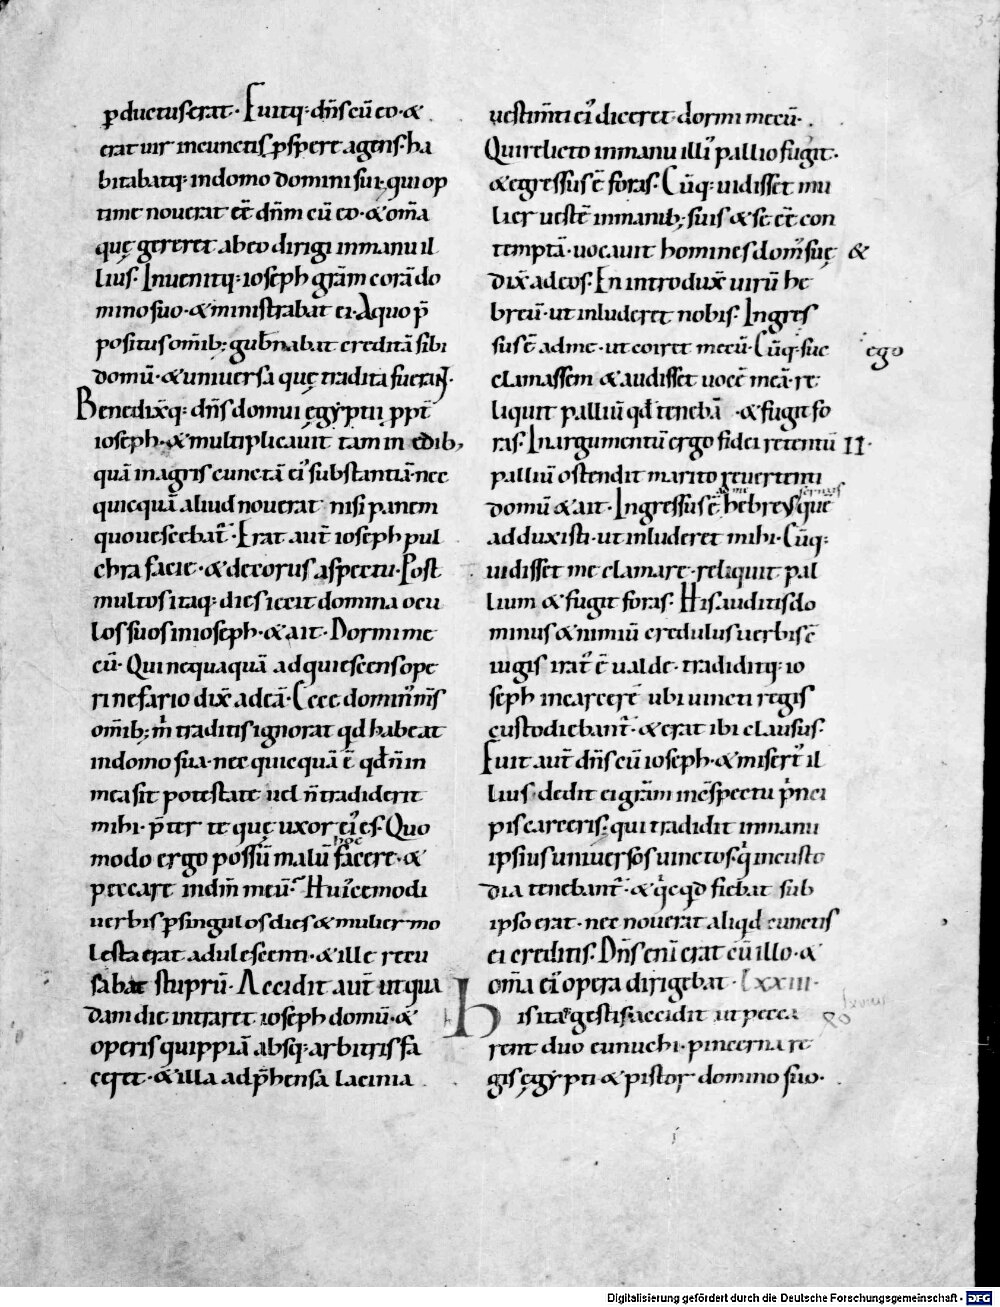 34
ꝑductus erat· Fuitq; dn̄s cū eo· &
erat uir in cunctis ꝓspere agens· ha
bitabatq; in domo domini sui; qui op
time nouerat eē dn̄m cū eo· & om̄a
quę gereret ab eo dirigi in manu il
lius· Inuenitq; ioseph grā̄m corā do
mino suo· & ministrabat ei· A quo p̄
positus om̄ib; gub̄nabat creditā sibi
domū· & uniuersa quę tradita fuerant·
Benedix̄q; dn̄s domui ęgẏptii ꝓpt̄
ioseph· & multiplicauit tam in ędib;
quā in agris cunctā ei' substantiā· nec
quicquā aliud nouerat nisi panem
quo uescebat̄· Erat aut̄ ioseph pul
chra facie· & decorus aspectu· Post
multos itaq; dies iecit domina ocu
los suos in ioseph· & ait· Dormi me
cū· Qui nequaquā adquiescens ope
ri nefario dix̄ ad eā· Ecce domin' m̄s
om̄ib; m̄ traditis ignorat qd habeat
in domo sua· nec quicquā ē̄ qd n̄ in
mea sit potestate uel n̄ tradiderit
mihi· p̄ter te quę uxor ei' es· Quo
modo ergo possū malū hoc facere· &
peccare in dm̄ meū· Hui'cemodi
uerbis ꝑ singulos dies & mulier mo
lesta erat adulescenti· & ille recu
sabat stuprū· Accidit aut̄ ut qua
dam die intraret ioseph domū· &
operis quippiā absq; arbitris fa
ceret· & illa adp̄hensa lacinia
uestim̄ti ei' diceret· dormi mecū·
Qui relicto in manu illi' pallio fugit·
& egressus ē foras· Cūq; uidisset mu
lier uestē in manib; suis & se eē con
temptā· uocauit homines dom' suę &
dix̄ ad eos· En introdux̄ uirū he
breū· ut inluderet nobis· Ingres
sus ē ad me· ut coiret mecū· Cūq; suc ego
clamassem & audisset uocē meā· re
liquit palliū qd tenebā · & fugit fo
ras· In argumentū ergo fidei retentū II·
palliū ostendit marito reuertenti
domū & ait· Ingressus ē ad me hebreus seruus quē
adduxisti· ut inluderet mihi· Cūq;
uidisset me clamare· reliquit pal
lium & fugit foras· His auditis do
minus & nimiū credulus uerbis c̄
iugis irat' ē ualde· tradiditq; io
seph in carcerē ubi uincti regis
custodiebant̄· & erat ibi clausus·
Fuit aut̄ dn̄s cū ioseph· & misert' il
lius· dedit ei grā̄m in c̄spectu p̍nci
pis carceris; qui tradidit in manu
ipsius uniuersos uinctos· q̍ in custo
dia tenebant̄· & q̍cqd fiebat sub
ipso erat· nec nouerat aliqd cunctis
ei creditis· Dn̄s eni̅ erat cū illo· &
om̄a ei' opera dirigebat· LXXIII·
his ita gestis accidit ut pecca
rent duo eunuchi· pincerna re
gis ęgẏpti & pistor domino suo·
Digitalisierung gefördert durch die Deutsche Forschungsgemeinschaft - DFG